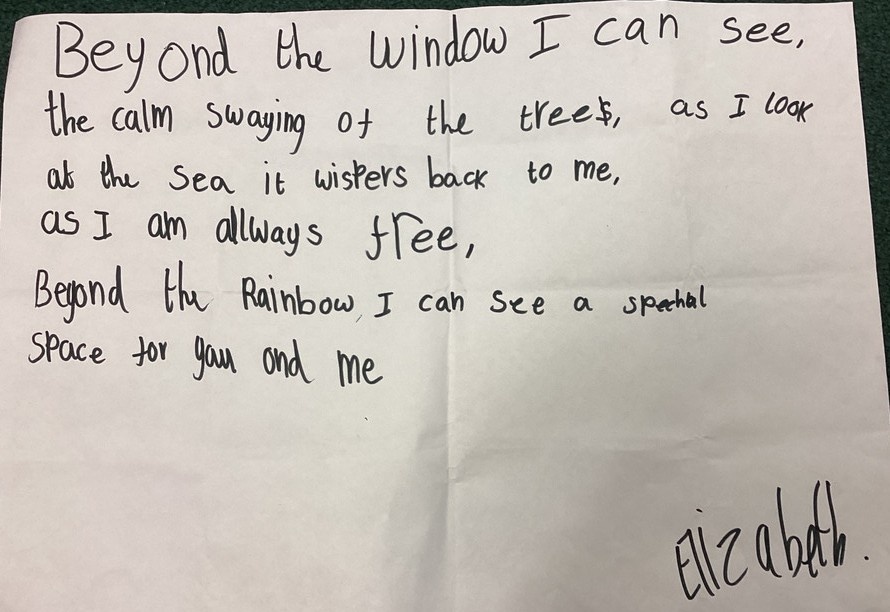 Beyond the window I can see,
the calm swaying of the trees, as I look
at the sea it wispers back to me,
as I am allways free,
Beyond the Rainbow, I can see a spechal
space for you and me
Elizabeth.